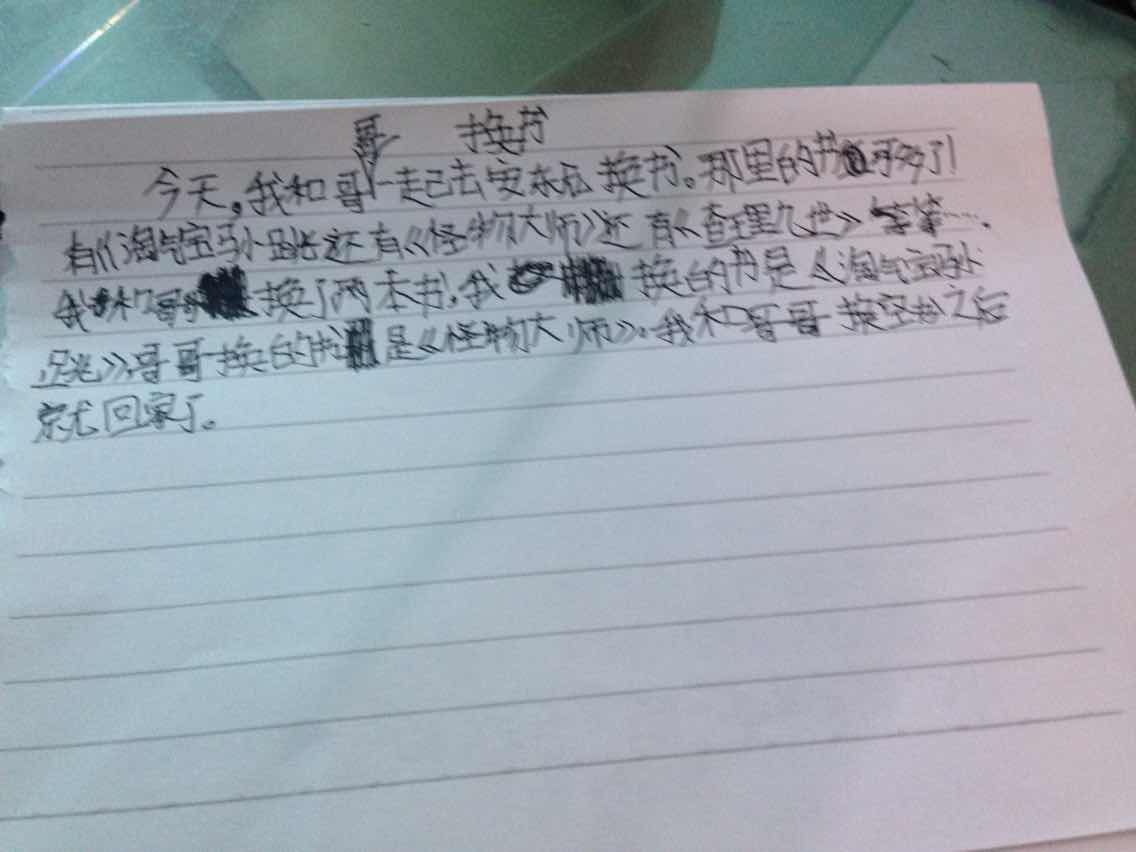 换书
今天,我和哥哥一起去安东尼换书。那里的书可多了!
有《淘气宝马小跳还有《怪物大师》还有《查理九世》等等……
我和哥哥换了两本书,我换的书是《淘气宝马小
跳》,哥哥换的书是《怪物大师》。我和哥哥换完书之后
就回家了。